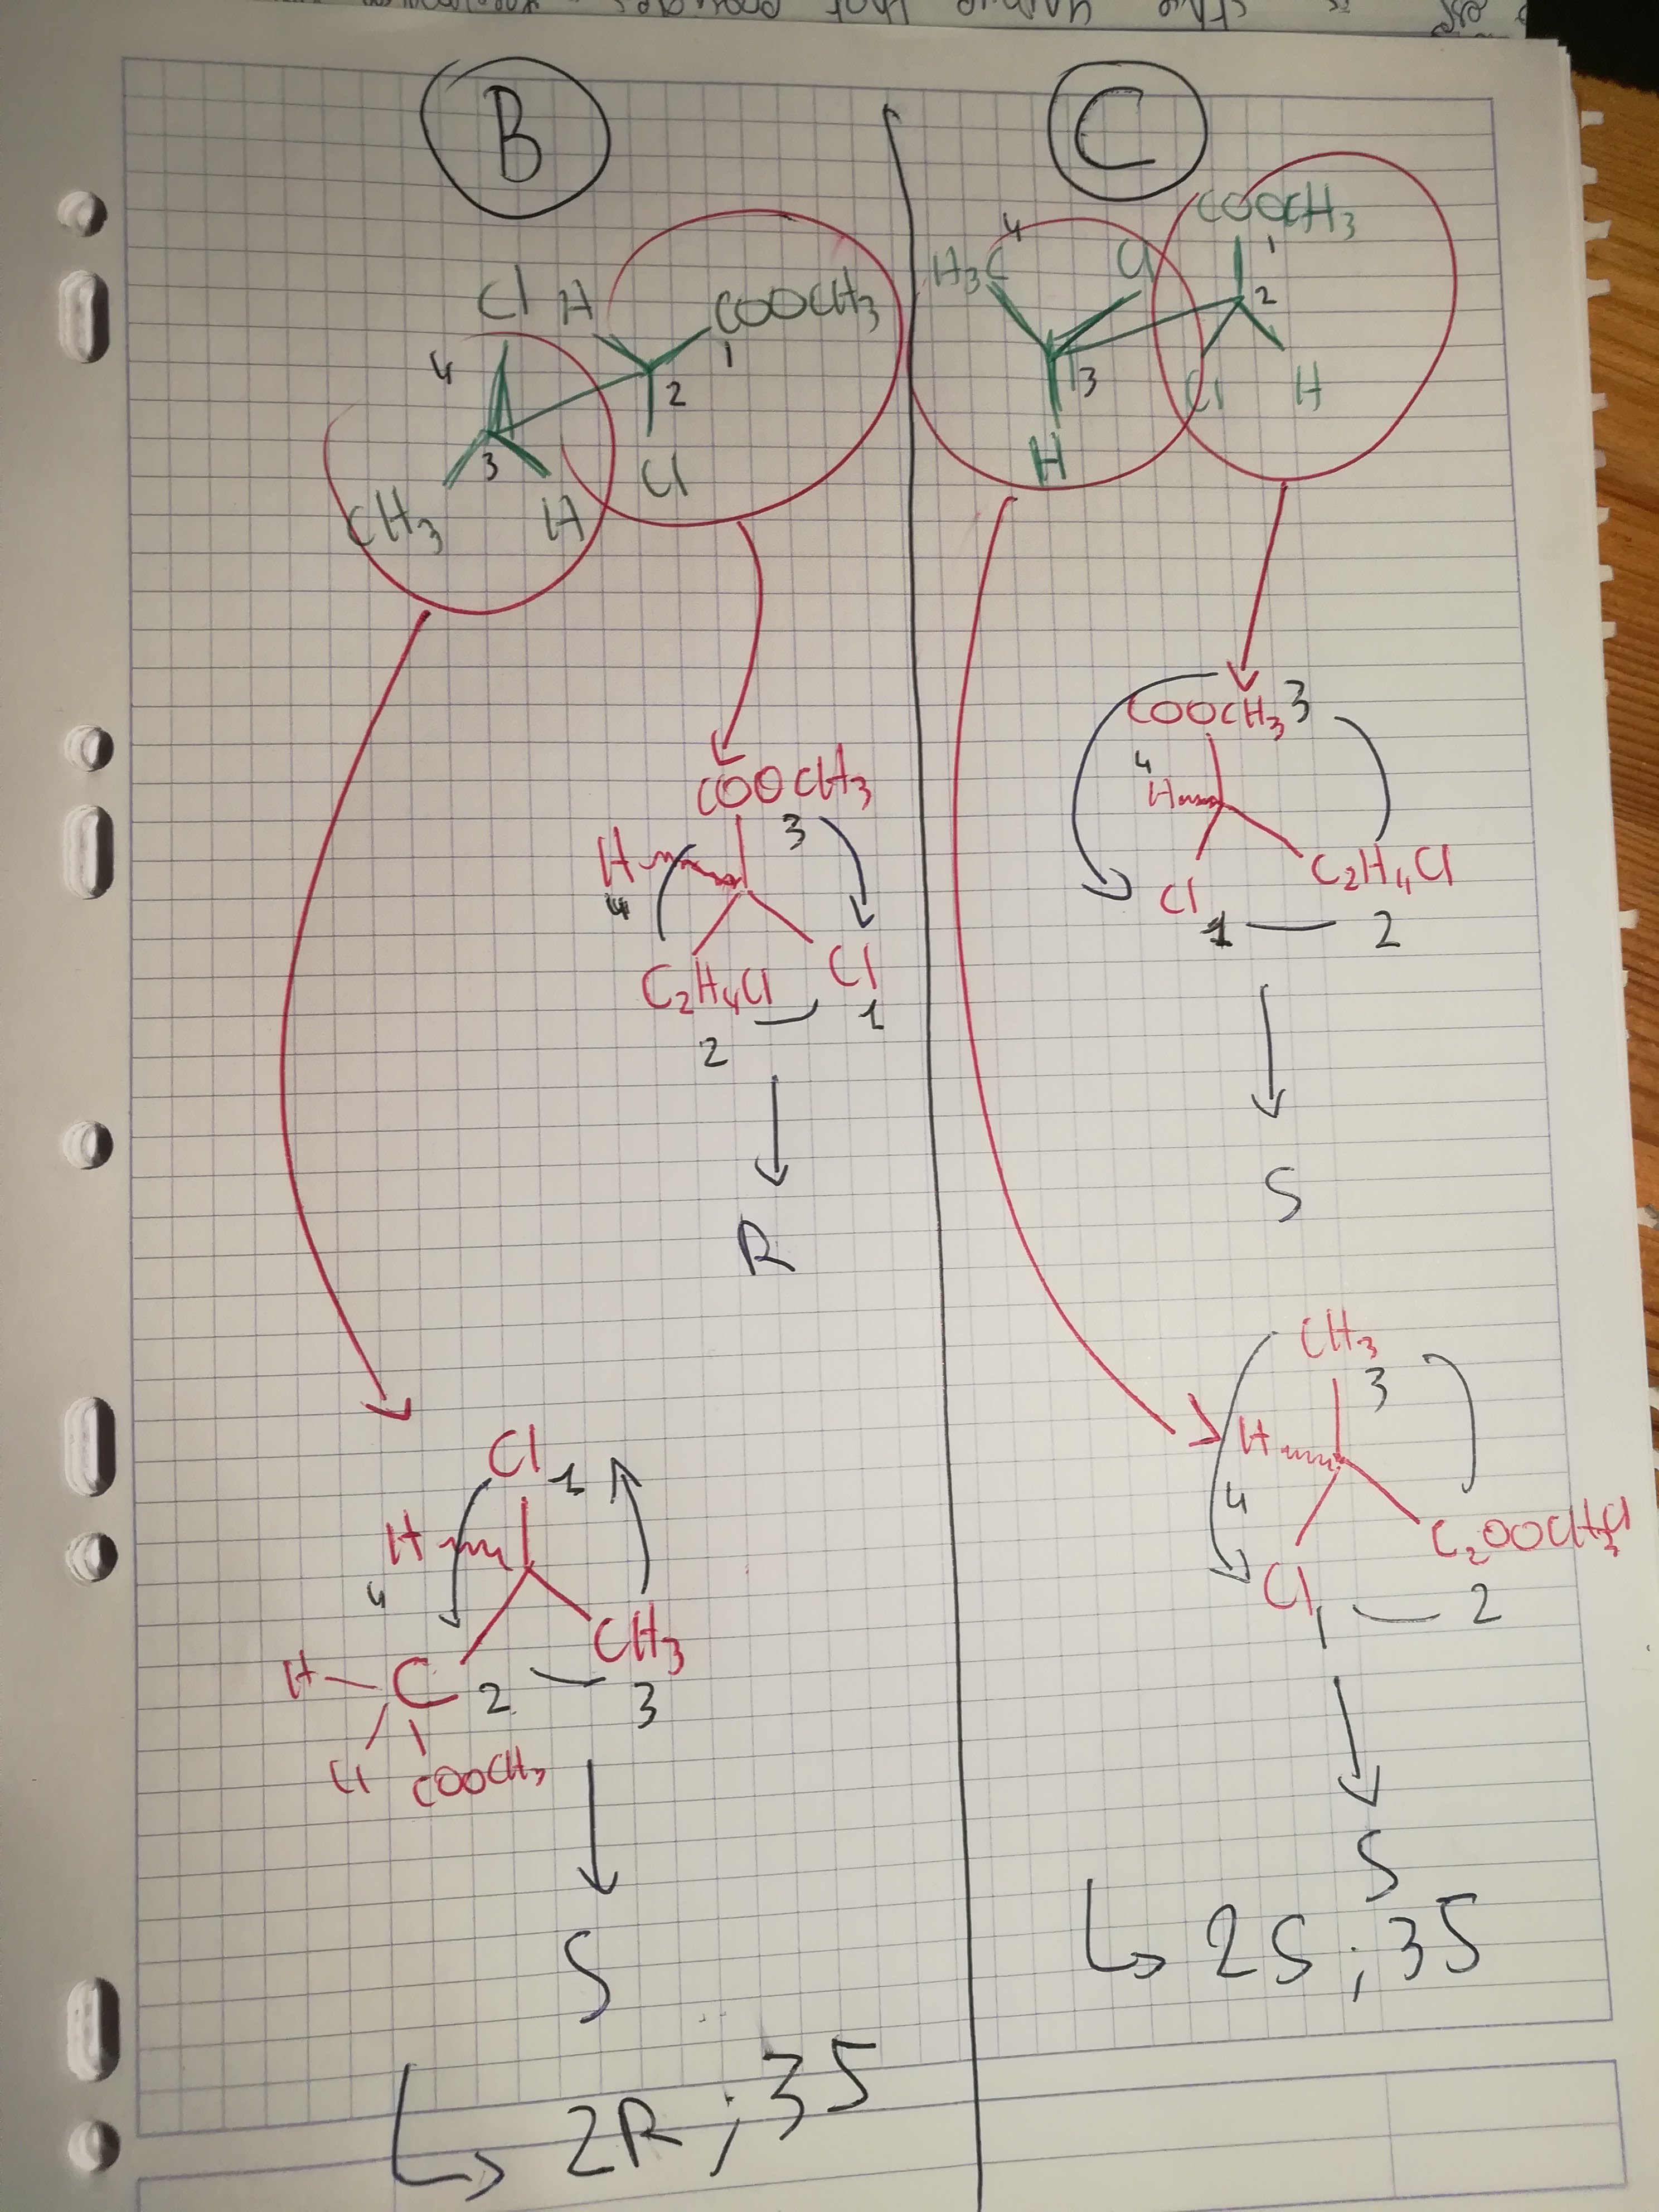 B
Cl H COOCH3
4 1
2
3
CH3 H Cl
COOCH3
H 3
4
C2H4Cl Cl
2 1
R
Cl 1
H
4
CH3
H C 2 3
Cl COOCH3
S
2R ; 3S
C
COOCH3
H3C 4 Cl 1
2
3
Cl H
H
COOCH3 3
4
H
Cl C2H4Cl
1 2
S
CH3
3
H
4
Cl
1 2
S
2S ; 3S